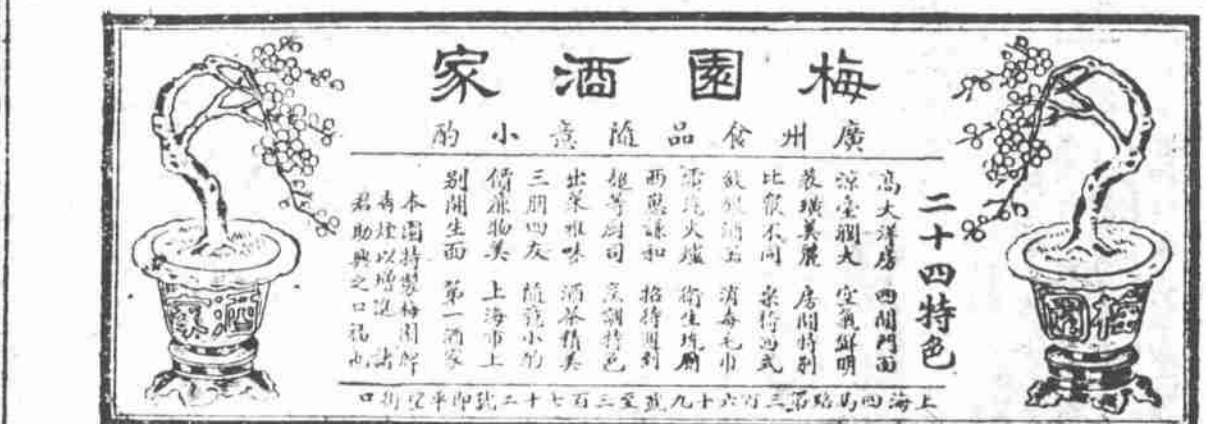 梅園酒家
廣州食品隨意小酌
二十四特色
高大洋房 四間門面
涼臺闊大 空氣鮮明
裝璜美麗 房間特別
比衆不同 桌椅西式
消毒毛巾
電氣火爐 衛生
西崽謙和 招待週到
超等厨司 烹調特色
出菜雅味 酒茶精美
三朋四友 隨意小酌
價廉物美 上海市上
別開生面 第一酒家
本園特製梅園鮮
煙以增進 諸
君助興之口福也
上海四馬路第三百六十九號至三百七十二號即平望街口
梅園
酒家